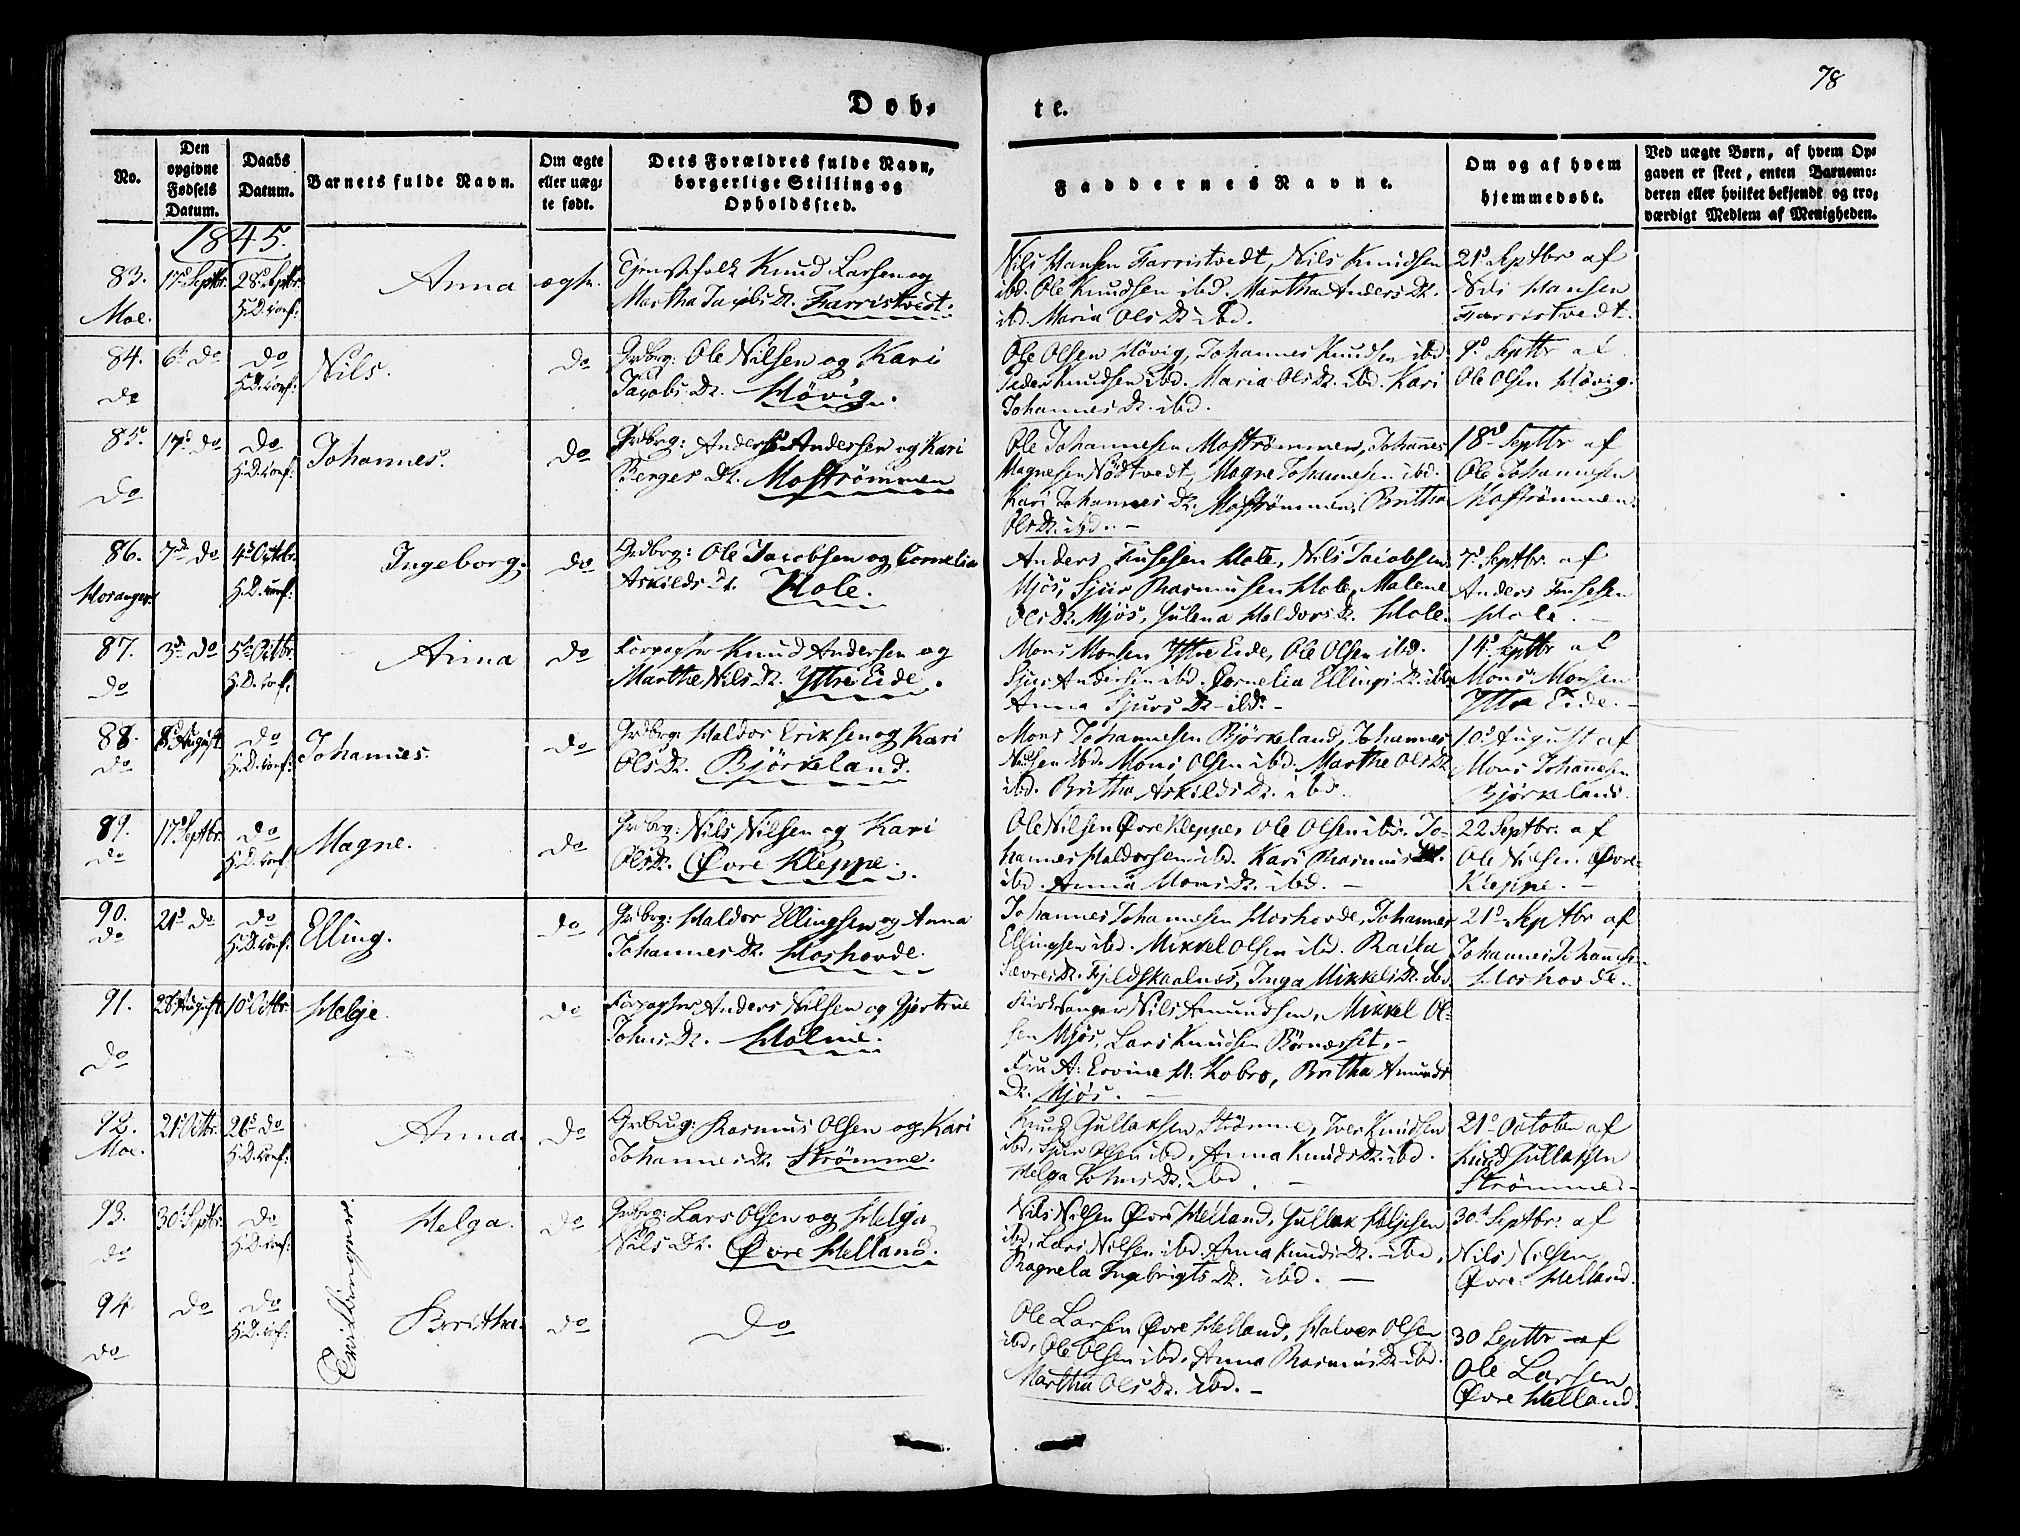 78
Døb-
te.
No.
Den
opgivne
Fødsels
Datum.
Daabs
Datum.
Barnets fulde Navn.
Om ægte
eller uæg-
te født.
Dets Forældres fulde Navn,
borgerlige Stilling og
Opholdssted.
Faddernes Navne.
Om og af hvem
hjemmedøbt.
Ved uægte Børn, af hvem Op-
gaven er skeet, enten Barnemo-
deren eller hvilket bekjendt og tro-
værdigt Medlem af Menigheden.
1845.
83.
Moe.
17d Septbr.
28d Septbr.
H.D. conf:
Anna
ægte.
Ejenstfolk Knud Larsen og
Martha Jacobs Dr. Farristvedt.
Nils Hansen Farristvedt, Nils Knudsen
ibd. Ole Knudsen ibd. Martha Anders Dr.
ibd. Maria Ols Dr. ibd.
21d Septbr af
Nils Hansen
Farristvedt.
84.
do
6t do
do
H.D. conf:
Nils.
do
Grdbrg: Ole Nilsen og Kari
Jacobs Dr. Høvig.
Ole Olsen Høvig, Johannes Knudsen ibd.
Peder Knudsen ibd. Maria Ols Dr. ibd. Kari
Johannes Dr. ibd.
9d Septbr af
Ole Olsen Høvig.
85.
do
17d do
do
H.D. conf:
Johannes.
do
Grdbrg: Anders Andersen og Kari
Berges Dr. Mostrømmen
Ole Johannesen Mostrømmen, Johannes
Magnesen Nödtvedt, Magne Johannesen ibd.
Kari Johannes Dr. Mostrømmen, Britha
Ols Dr. ibd. –
18d Septbr af
Ole Johannesen
Mostrømmen.
86.
Hosanger
7de do
4d Octbr.
H.D. conf:
Ingeborg.
do
Grdbrg: Ole Jacobsen og Cornelia
Askilds Dr. Hole.
Anders Hole, Nils Jacobsen
Mjøs, Sjur Rasmusen Hole, Malene
Ols Dr. Mjøs, Julena Haldors Dr. Hole.
7d Septbr. af
Anders
Hole. –
87.
do
3d do
5te Octbr.
H.D. conf:
Anna
do
Knud Andersen og
Marthe Nils Dr. Ytre Eide.
Mons Monsen Yttre Eide, Ole Olsen ibd.
Sjur Andersen ibd. Cornelia Ellings Dr. ibd.
Anna Sjurs Dr. ibd. –
14d Septbr af
Mons Monsen
Yttre Eide. –
88.
do
8d August
do
H.D. conf:
Johannes.
do
Grdbrg: Haldor Eriksen og Kari
Ols Dr. Björkeland.
Mons Johannesen Björkeland, Johannes
Nilsen ibd. Mons Olsen ibd. Marthe Ols Dr.
ibd. Britha Askilds Dr. ibd.
10d August af
Mons Johannesen
Björkeland.
89.
do
17d Septbr.
do
H.D. conf
Magne.
do
Grdbrg: Nils Nilsen og Kari
Ols Dr. Øvre Kleppe.
Ole Nilsen Øvre Kleppe, Ole Olsen ibd. Jo-
hannes Haldorsen ibd. Kari Rasmus Dr.
ibd. Anna Mons Dr. ibd. –
22 Septbr. af
Ole Nilsen Øvre
Kleppe. –
90.
do
21d do
do
H.D. conf:
Elling.
do
Grdbrg: Haldor Ellingsen og Anna
Johannes Dr. Hoshovde.
Johannes Johannesen Hoshovde, Johannes
Ellingsen ibd. Mikkel Olsen ibd. Raila
Sævres Dr. Fjeldskaalnes, Inga Mikkels Dr. ibd.
21d Septbr af
Johannes Johannesen
Hoshovde.
91.
do
28 August
10d Octbr.
Helje.
do
Anders Nilsen og Gjertrue
Johns Dr. Holme.
Kirkesanger Nils Amundsen, Mikkel Ol-
sen Mjøs, Lars Knudsen Börnesset, –
Fru A: Ervine H. Kobro, Britha Amunds
Dr. Mjøs. –
92.
Moe.
21d Octbr.
26d do
H.D. conf:
Anna.
do
Grdbrug: Rasmus Olsen og Kari
Johannes Dr. Strømme.
Knud Gullaksen Strømme, Iver Knudsen
ibd, Sjur Olsen ibd, Anna Knuds Dr. ibd.
Helga Johns Dr. ibd. –
21d October af
Knud Gullaksen
Strømme. –
93.
do
30te Septbr.
do
H.D. conf:
Tvillingpiger.
Helga.
do
Grdbrg: Lars Olsen og Helga
Nils Dr. Øvre Helland.
Nils Nilsen Øvre Helland, Gullak Heljesen
ibd, Lars Nilsen ibd. Anna Knuds Dr. ibd,
Ragnela Ingebrigts Dr. ibd. –
30d Septbr. af
Nils Nilsen
Øvre Helland.
94
do
do
do
H.D. conf:
Britha.
do
do
Ole Larsen Øvre Helland, Halvor Olsen
ibd, Ole Olsen ibd. Anna Rasmus Dr. ibd.
Martha Ols Dr. ibd. –
30 Septbr af
Ole Larsen
Øvre Helland.